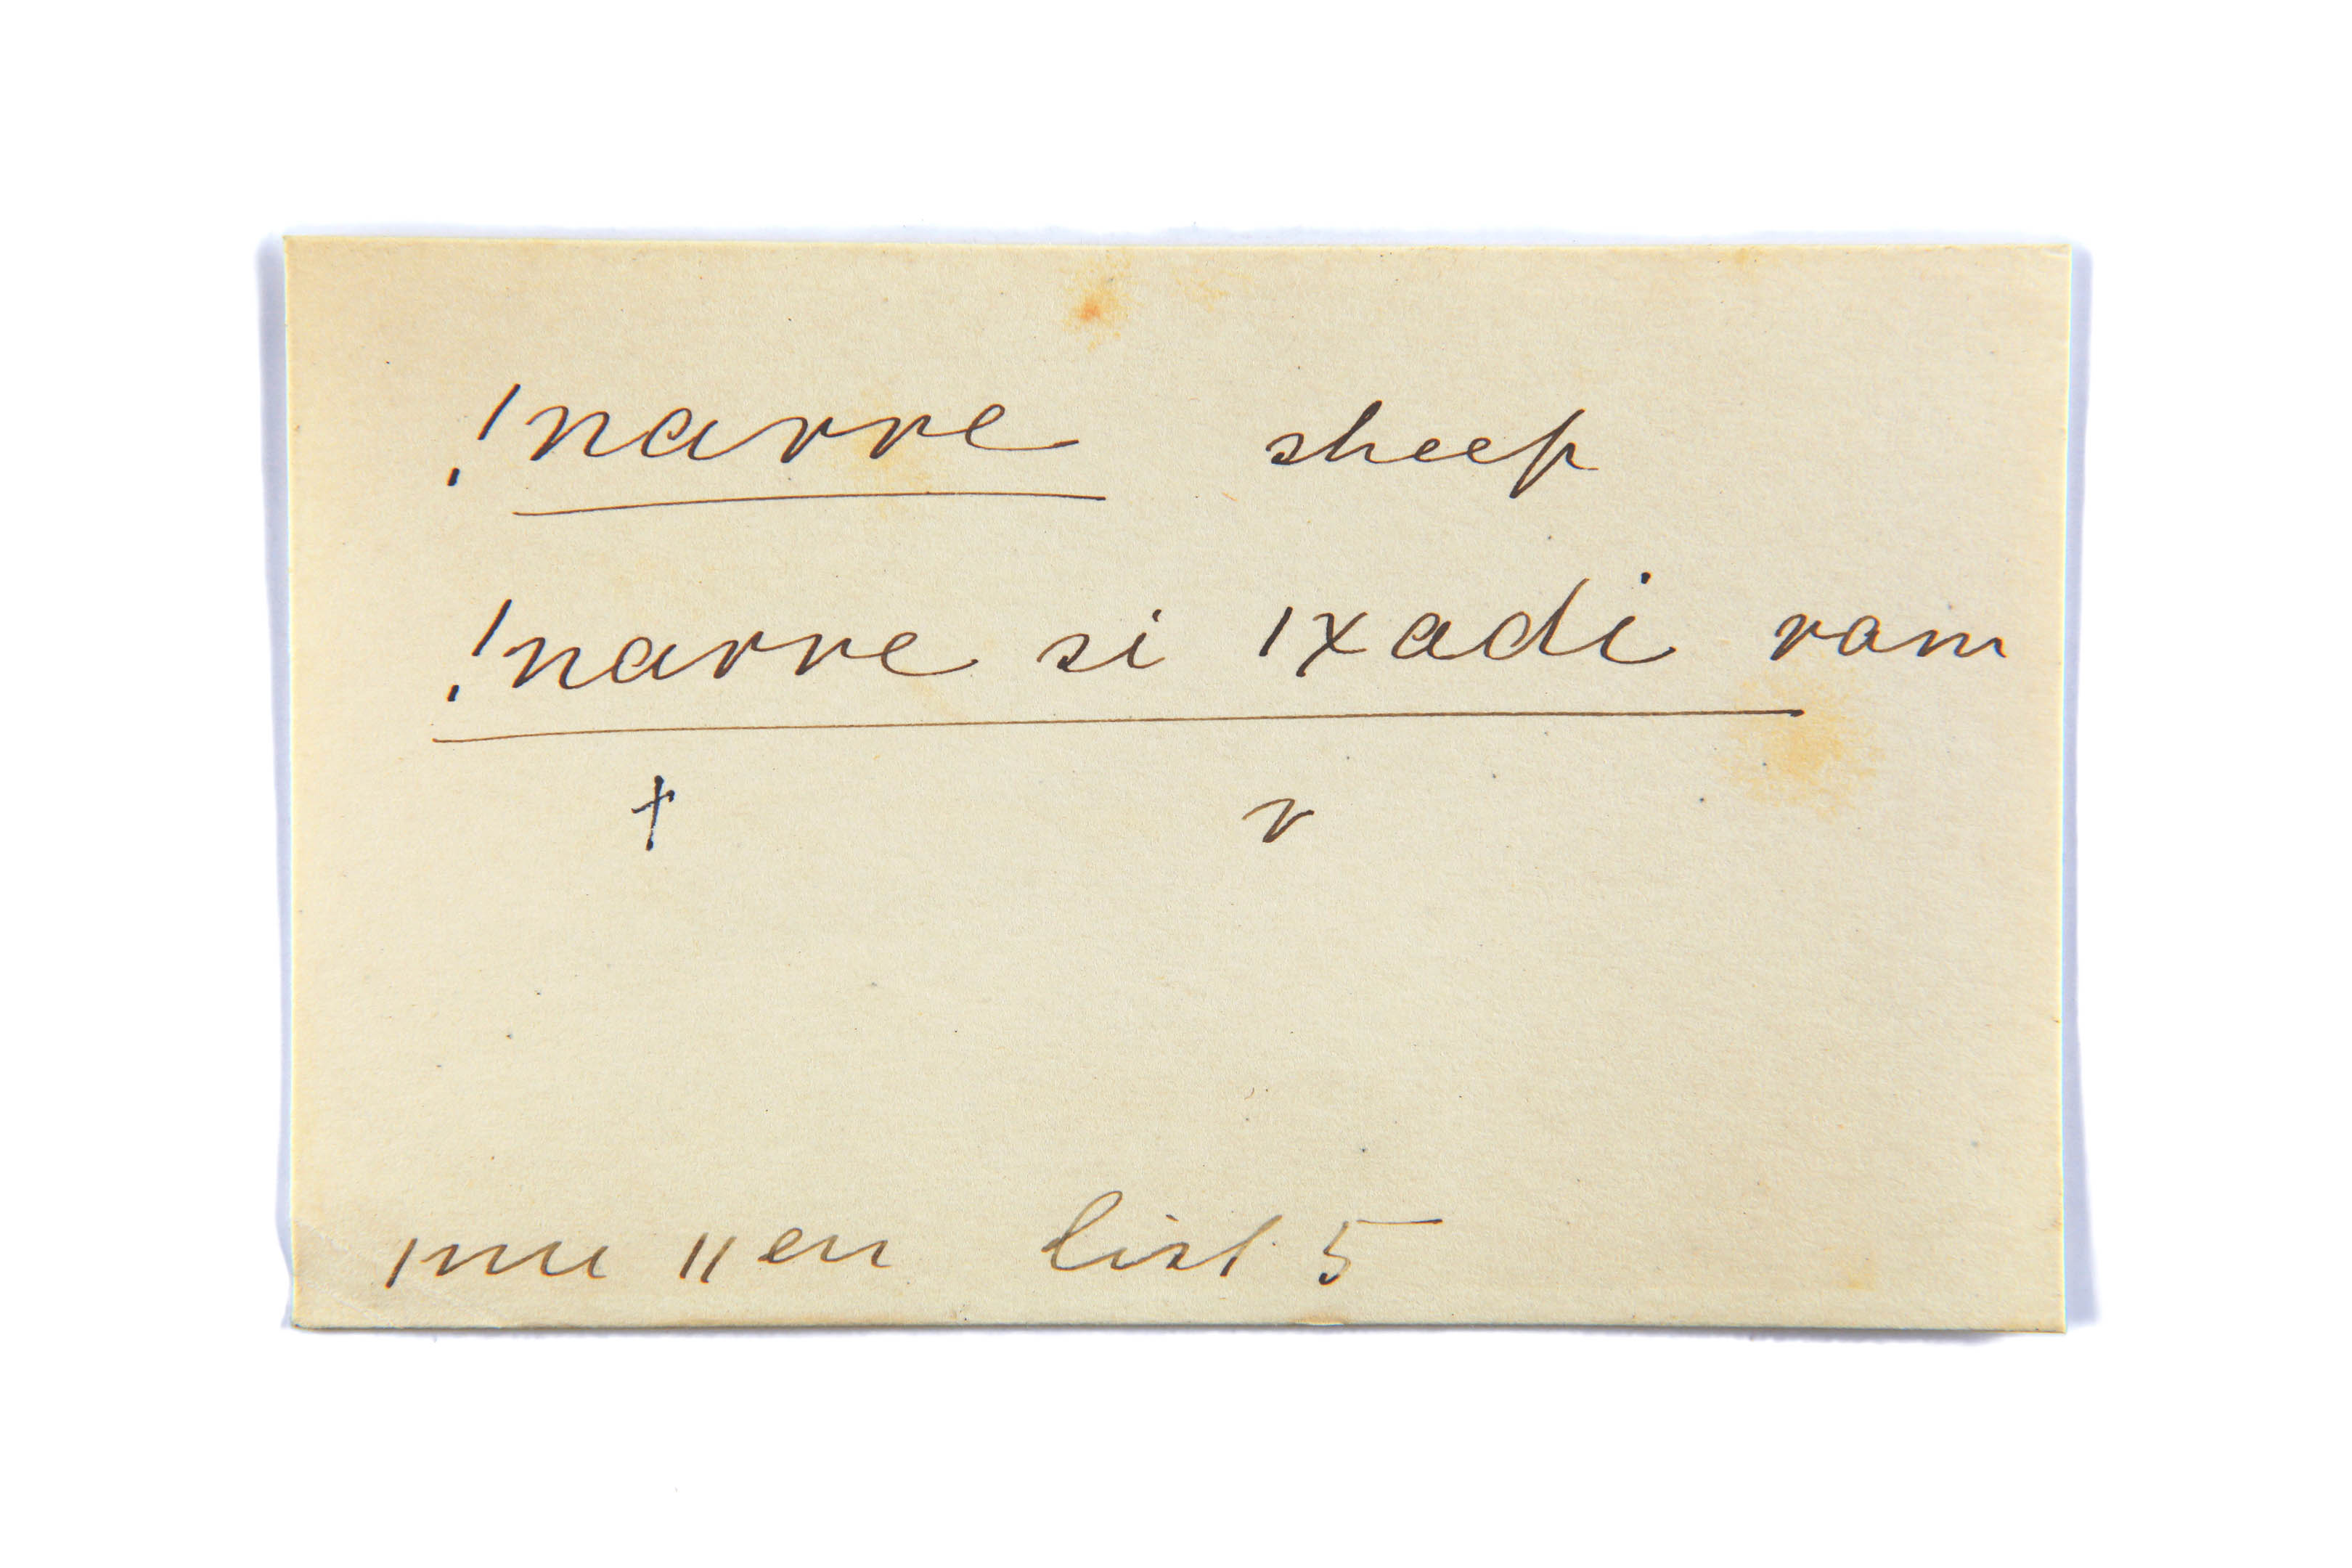 !narre sheep
!narre si ǀxadi ram
+ r
ǀnu ǁen list 5